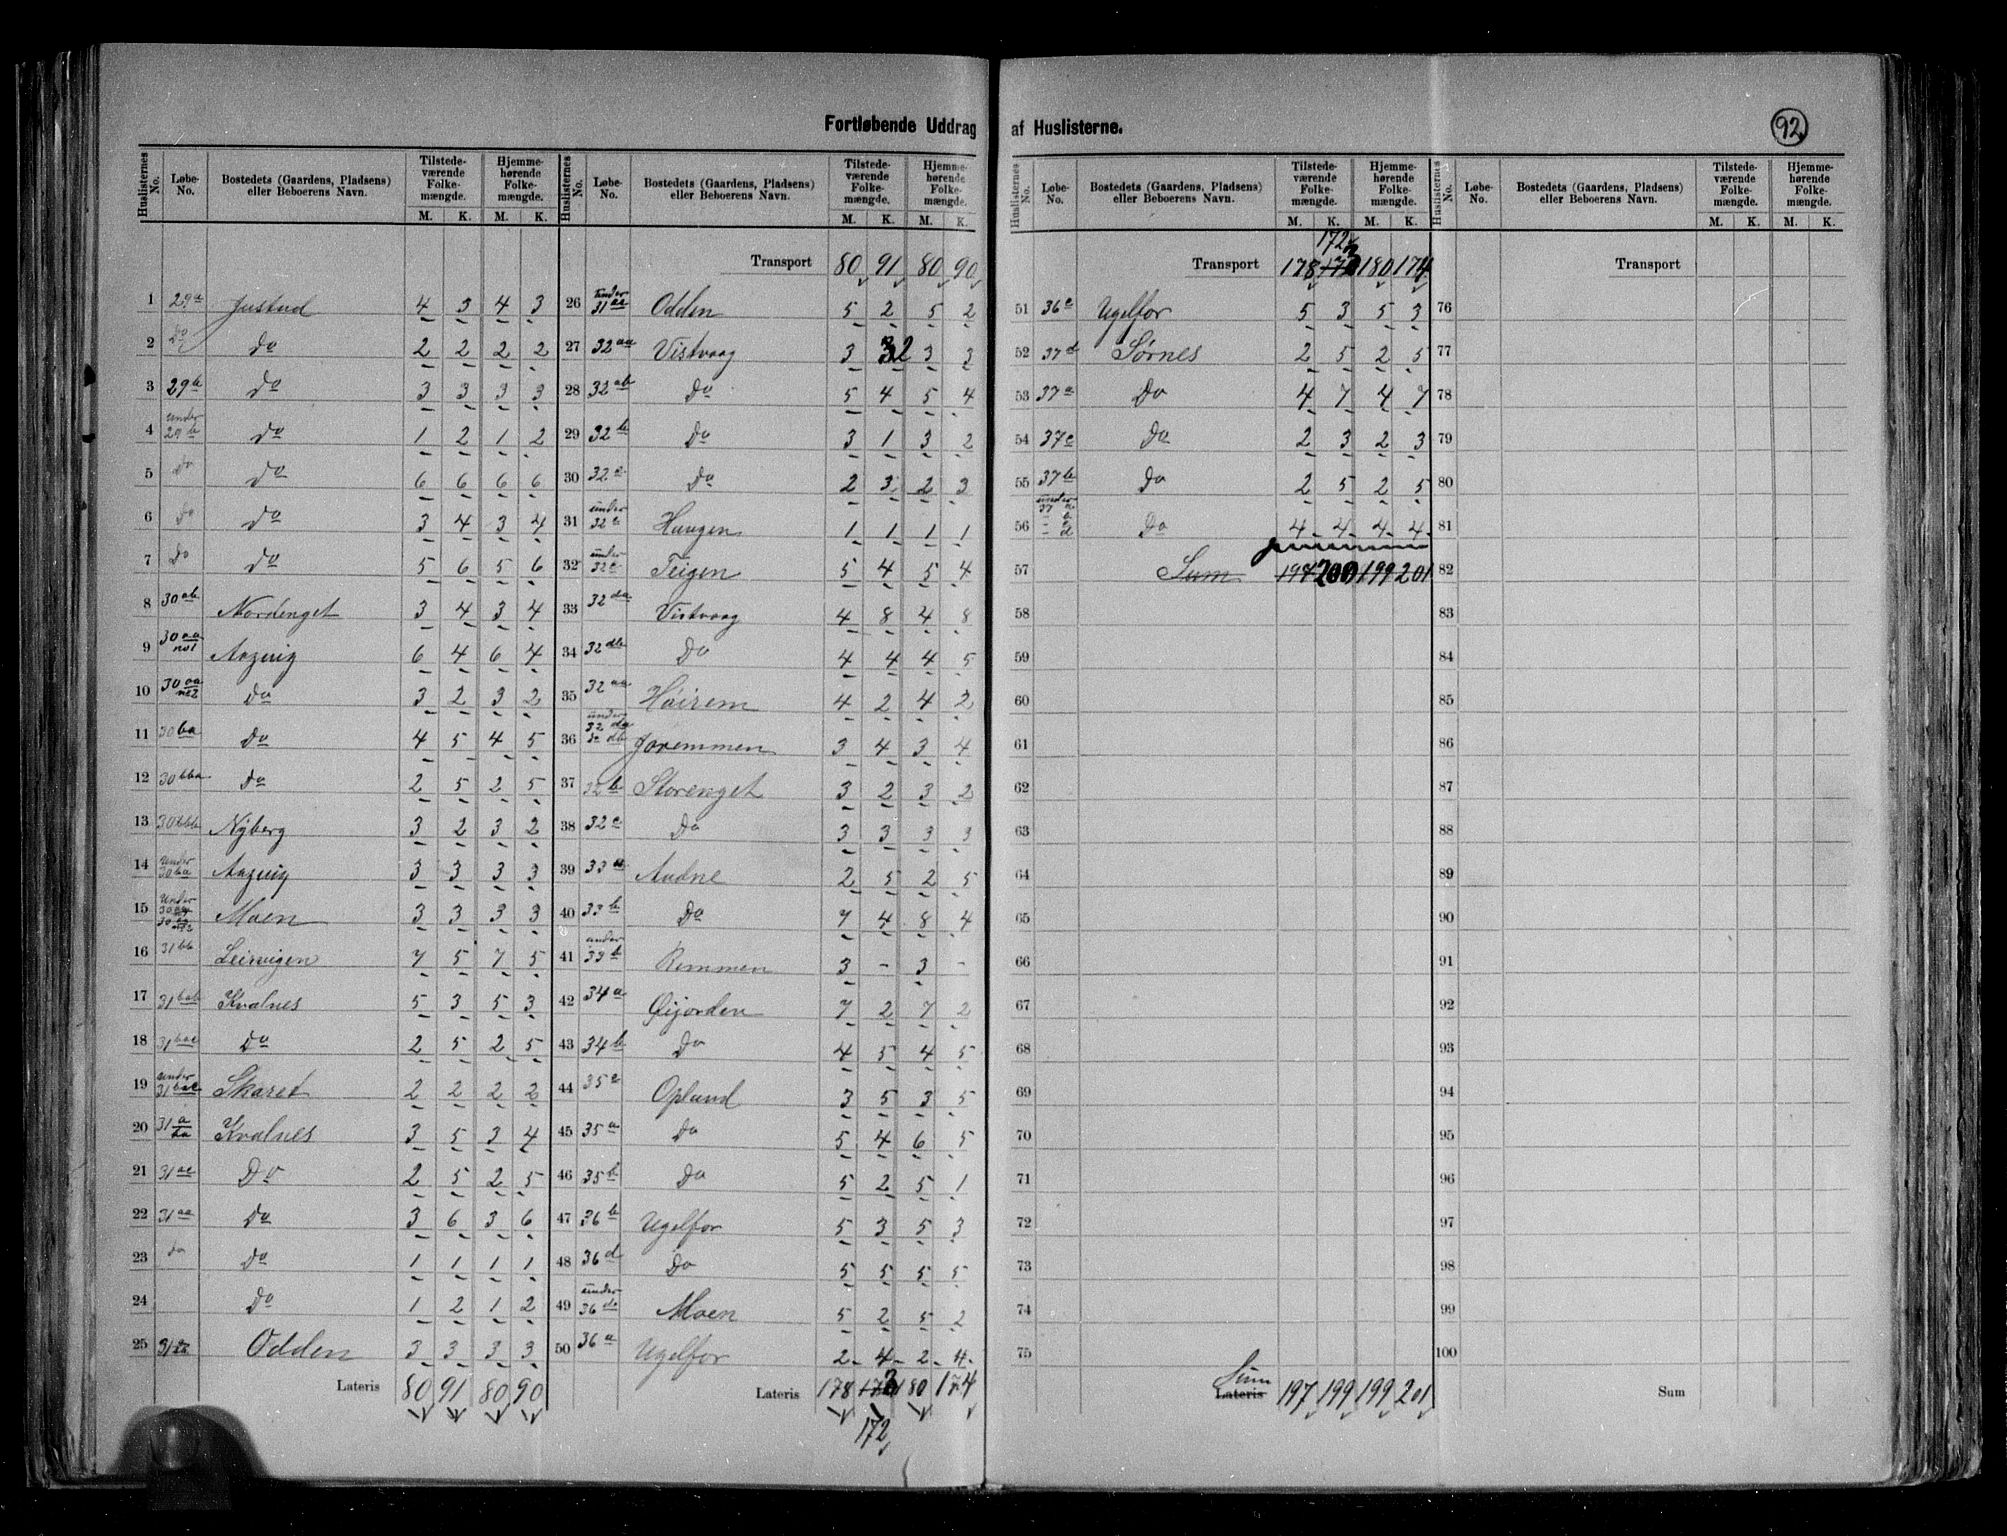 Fortløbende Uddrag af Huslisterne.
92
Huslisternes No. | Løbe-No. | Bostedets (Gaardens, Pladsens) eller Beboerens Navn. | Tilstede-værende Folke-mængde. M. K. | Hjemme-hørende Folke-mængde. M. K.
1 29a Justad 4 3 4 3
2 Do Do 2 2 2 2
3 29b Do 3 3 3 3
4 under 29b Do 1 2 1 2
5 Do Do 6 6 6 6
6 Do Do 3 4 3 4
7 Do Do 5 6 5 6
8 30ab Nordenget 3 4 3 4
9 30aa no1 Aagvig 6 4 6 4
10 30aa no2 Do 3 2 3 2
11 30ba Do 4 5 4 5
12 30bba Do 2 5 2 5
13 30bbb Nyberg 3 2 3 2
14 under 30ba Aagvig 3 3 3 3
15 Under 30aa Moen 3 3 3 3
16 31bb Leirvigen 7 5 7 5
17 31bab Kvalnes 5 3 5 3
18 31bac Do 2 5 2 5
19 under 31bac Skaret 2 2 2 2
20 31a ba Kvalnes 3 5 3 4
21 31ac Do 2 5 2 5
22 31aa Do 3 6 3 6
23 do Do 1 1 1 1
24 Do 1 2 1 2
25 Odden 3 3 3 3
Lateris 80 91 80 90
Huslisternes No. | Løbe-No. | Bostedets (Gaardens, Pladsens) eller Beboerens Navn. | Tilstede-værende Folke-mængde. M. K. | Hjemme-hørende Folke-mængde. M. K.
Transport 80 91 80 90
26 under 31ac Odden 5 2 5 2
27 32aa Vistvaag 3 2 3 3
28 32ab Do 5 4 5 4
29 32b Do 3 1 3 2
30 32c Do 2 3 2 3
31 under 32c Haugen 1 1 1 1
32 under 32c Teigen 5 4 5 4
33 32da Vistvaag 4 8 4 8
34 32db Do 4 4 4 5
35 32aa Høirem 4 2 4 2
36 under 32da 32db Joremmen 3 4 3 4
37 32b Storenget 3 2 3 2
38 32c Do 3 3 3 3
39 33a Audne 2 5 2 5
40 33b Do 7 4 8 4
41 under 33b Remmen 3 - 3 -
42 34a Øijorden 7 2 7 2
43 34b Do 4 5 4 5
44 35c Opland 3 5 3 5
45 35a Do 5 4 6 5
46 35b Do 5 2 5 1
47 36b Ugelfor 5 3 5 3
48 36d Do 5 5 5 5
49 under 36d Moen 5 2 5 2
50 36a Ugelfor 2 4 2 4
Lateris 178 173 180 174
172
Huslisternes No. | Løbe-No. | Bostedets (Gaardens, Pladsens) eller Beboerens Navn. | Tilstede-værende Folke-mængde. M. K. | Hjemme-hørende Folke-mængde. M. K.
172
Transport 178 173 180 174
51 36c Ugelfor 5 3 5 3
52 37d Sørnes 2 5 2 5
53 37a Do 4 7 4 7
54 37c Do 2 3 2 3
55 37b Do 2 5 2 5
56 under 37 Do 4 4 4 4
57 Sum 197 200 199 201
58
59
60
61
62
63
64
65
66
67
68
69
70
71
72
73
74
75
Sum
Lateris 197 199 199 201
Huslisternes No. | Løbe-No. | Bostedets (Gaardens, Pladsens) eller Beboerens Navn. | Tilstede-værende Folke-mængde. M. K. | Hjemme-hørende Folke-mængde. M. K.
Transport
76
77
78
79
80
81
82
83
84
85
86
87
88
89
90
91
92
93
94
95
96
97
98
99
100
Sum